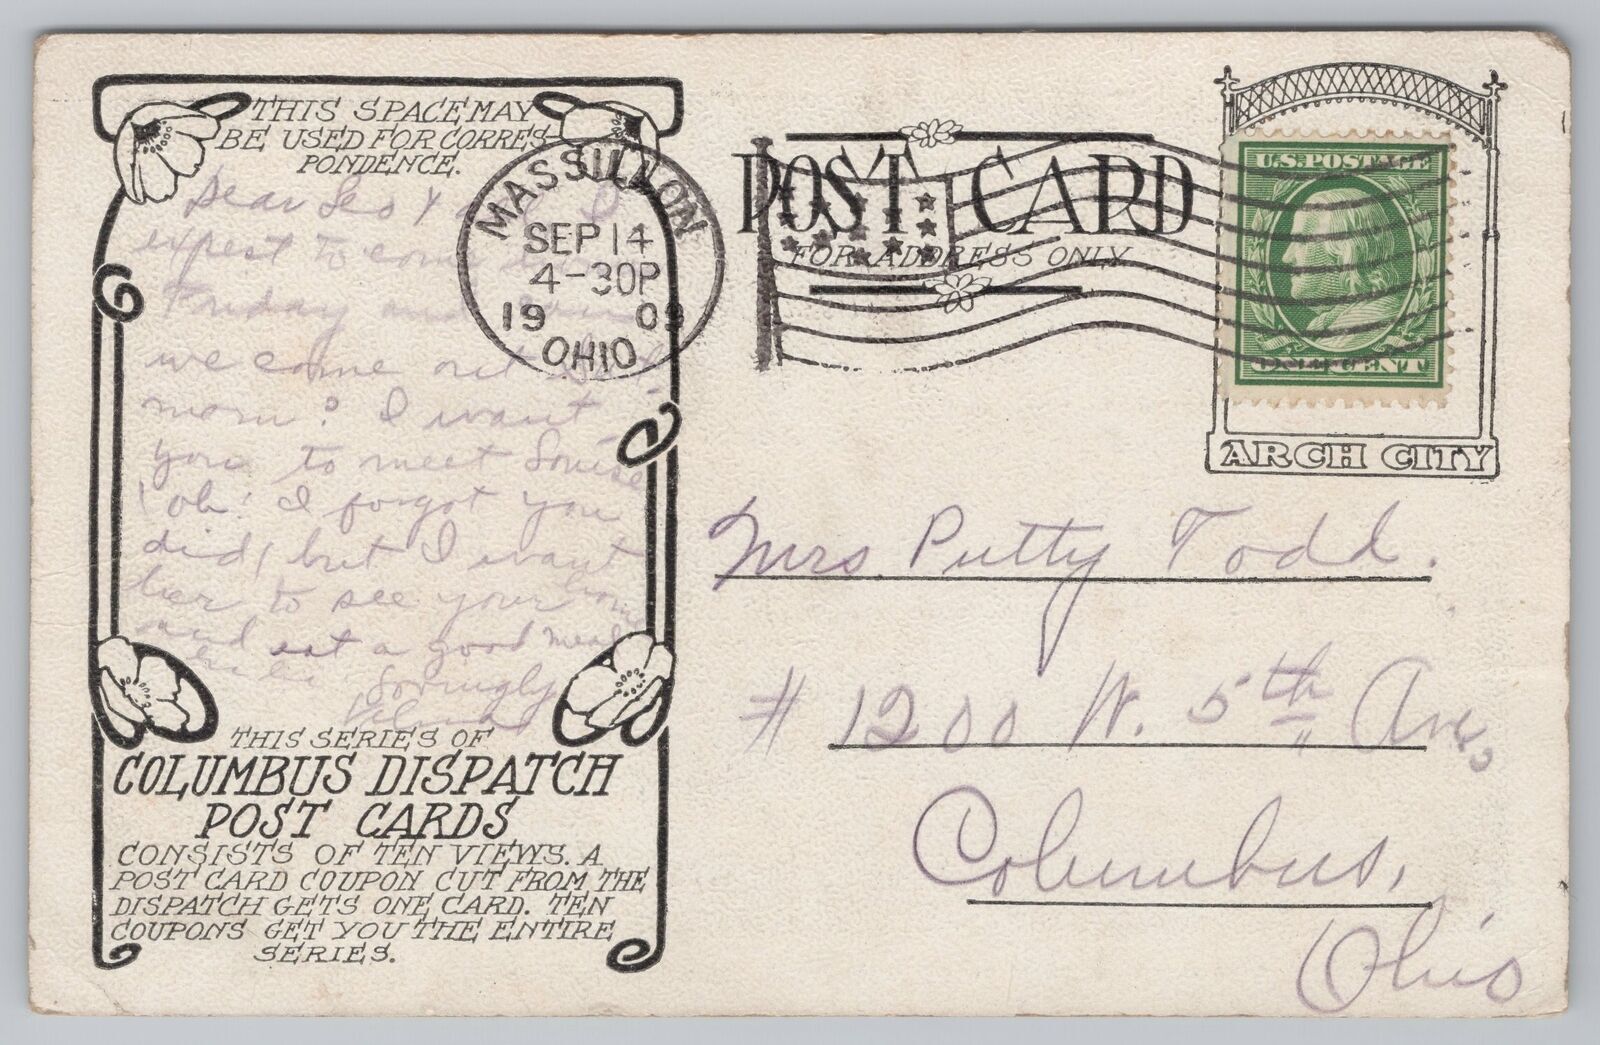 THIS SPACE MAY
BE USED FOR CORRES-
PONDENCE.
Dear Leo & I
expect to come
Friday and
we come out Sat.
morn? I want
you to meet Louise
(oh! I forgot you
did) but I want
her to see your home
and eat a good meal
Lovingly
Velma
THIS SERIES OF
COLUMBUS DISPATCH
POST CARDS
CONSISTS OF TEN VIEWS. A
POST CARD COUPON CUT FROM THE
DISPATCH GETS ONE CARD. TEN
COUPONS GET YOU THE ENTIRE
SERIES.
MASSILLON
SEP 14
4-30P
1909
OHIO
POST CARD
FOR ADDRESS ONLY
U.S. POSTAGE
ONE CENT
ARCH CITY
Mrs Putty Todd.
# 1200 W. 5th Ave,
Columbus,
Ohio